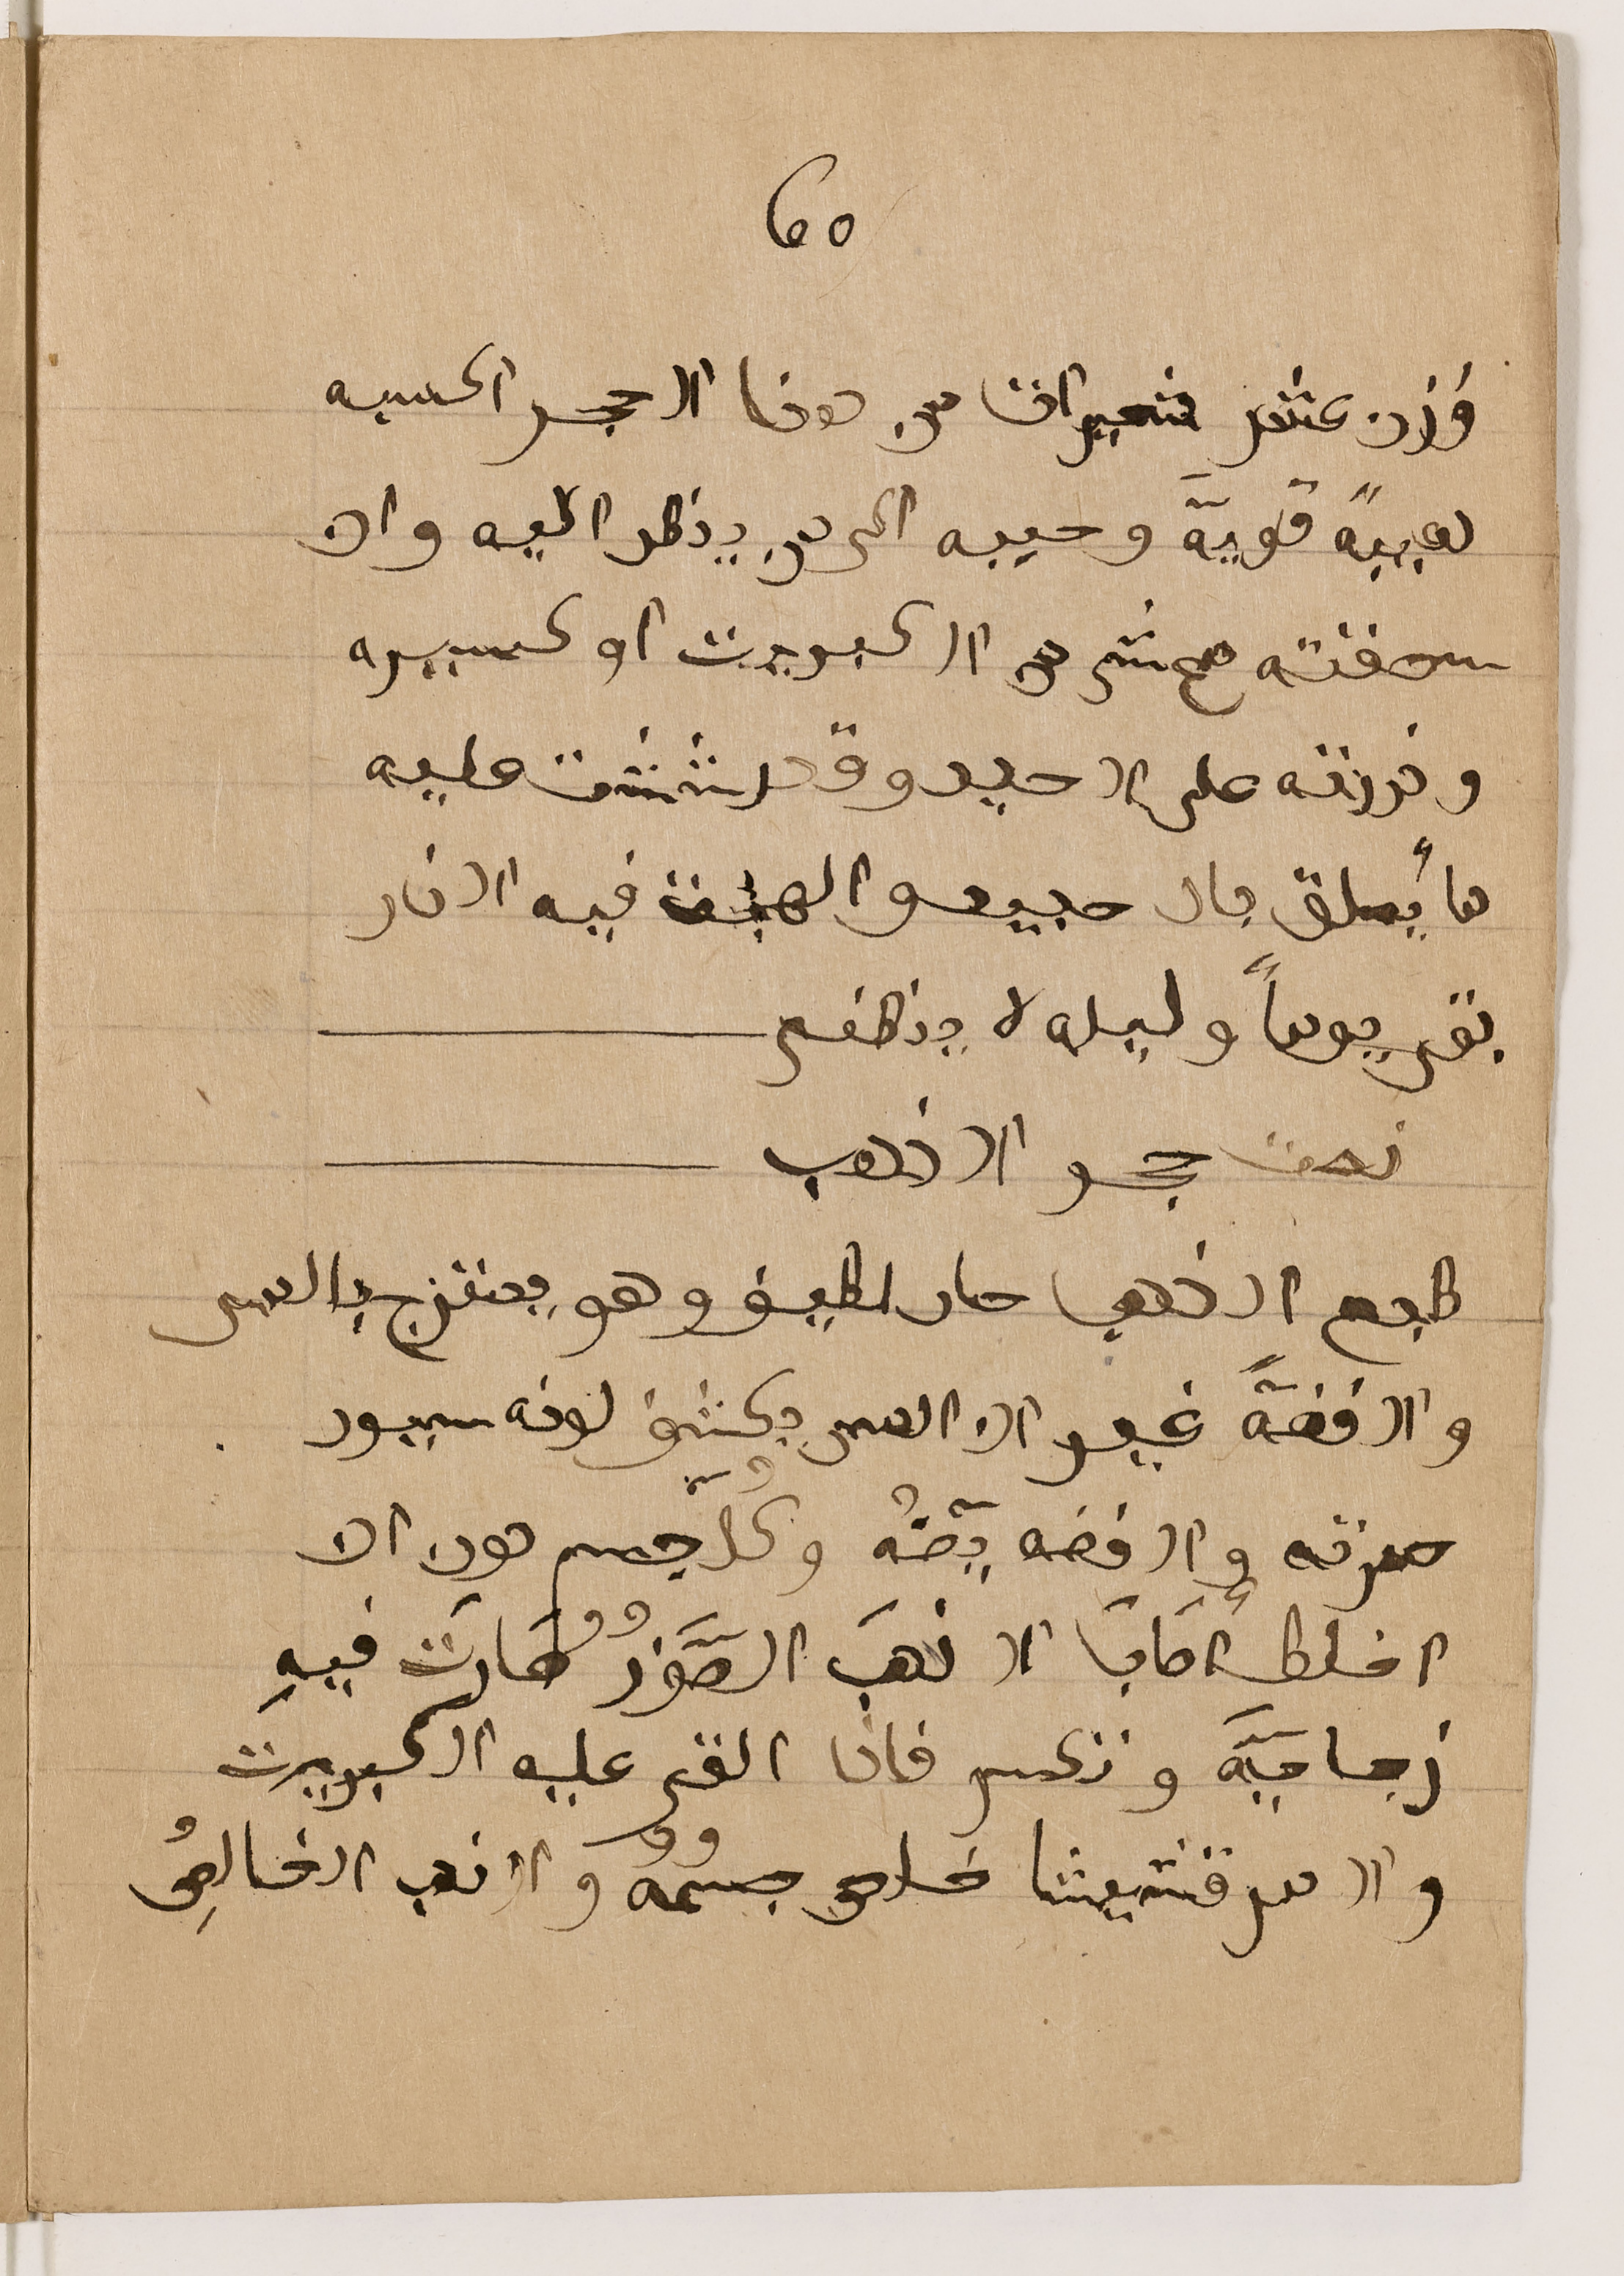 ٦٥
وزن عشر شعيرات من هذا الحجر اكسبه
هيبةً قويّة وحببه الى من ينظر اليه وان
سحقته مع شي من الكبريت او كسيره
وذررته على الحديد وقد رششت عليه
ماءً يعلق بالحديد والهبت فيه النار
بقى يوماً وليله لا ينطفى
نعت حجر الذهب
طبع الذهب حار لطيف وهو يمتزج بالمس
والفضةً غير ان المس يكشف لونه يسود
حمرته والفضه يبيّضه وكل جسم دون ان
اخلط اصاب الذهب الصور صارت فيهِ
زجاجيّة وتكسر فاذا القى عليه الكبريت
والمرقشيثا خلص جسمه والذهب الخالِصُ